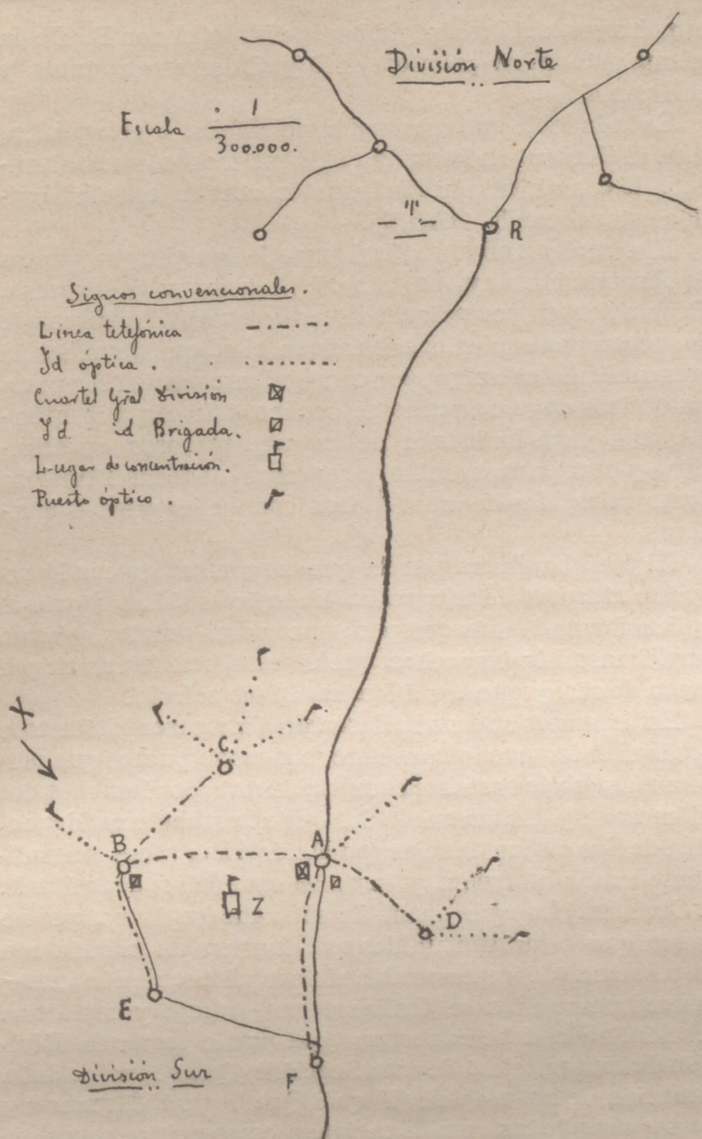 División Norte
Escala 1
300.000.
"1"
R
Signos convencionales.
Línea telefónica
Id óptica.
Cuartel Gral División
Id id Brigada.
Lugar de concentración.
Puesto óptico.
X
C
B
A
Z
D
E
División Sur
F